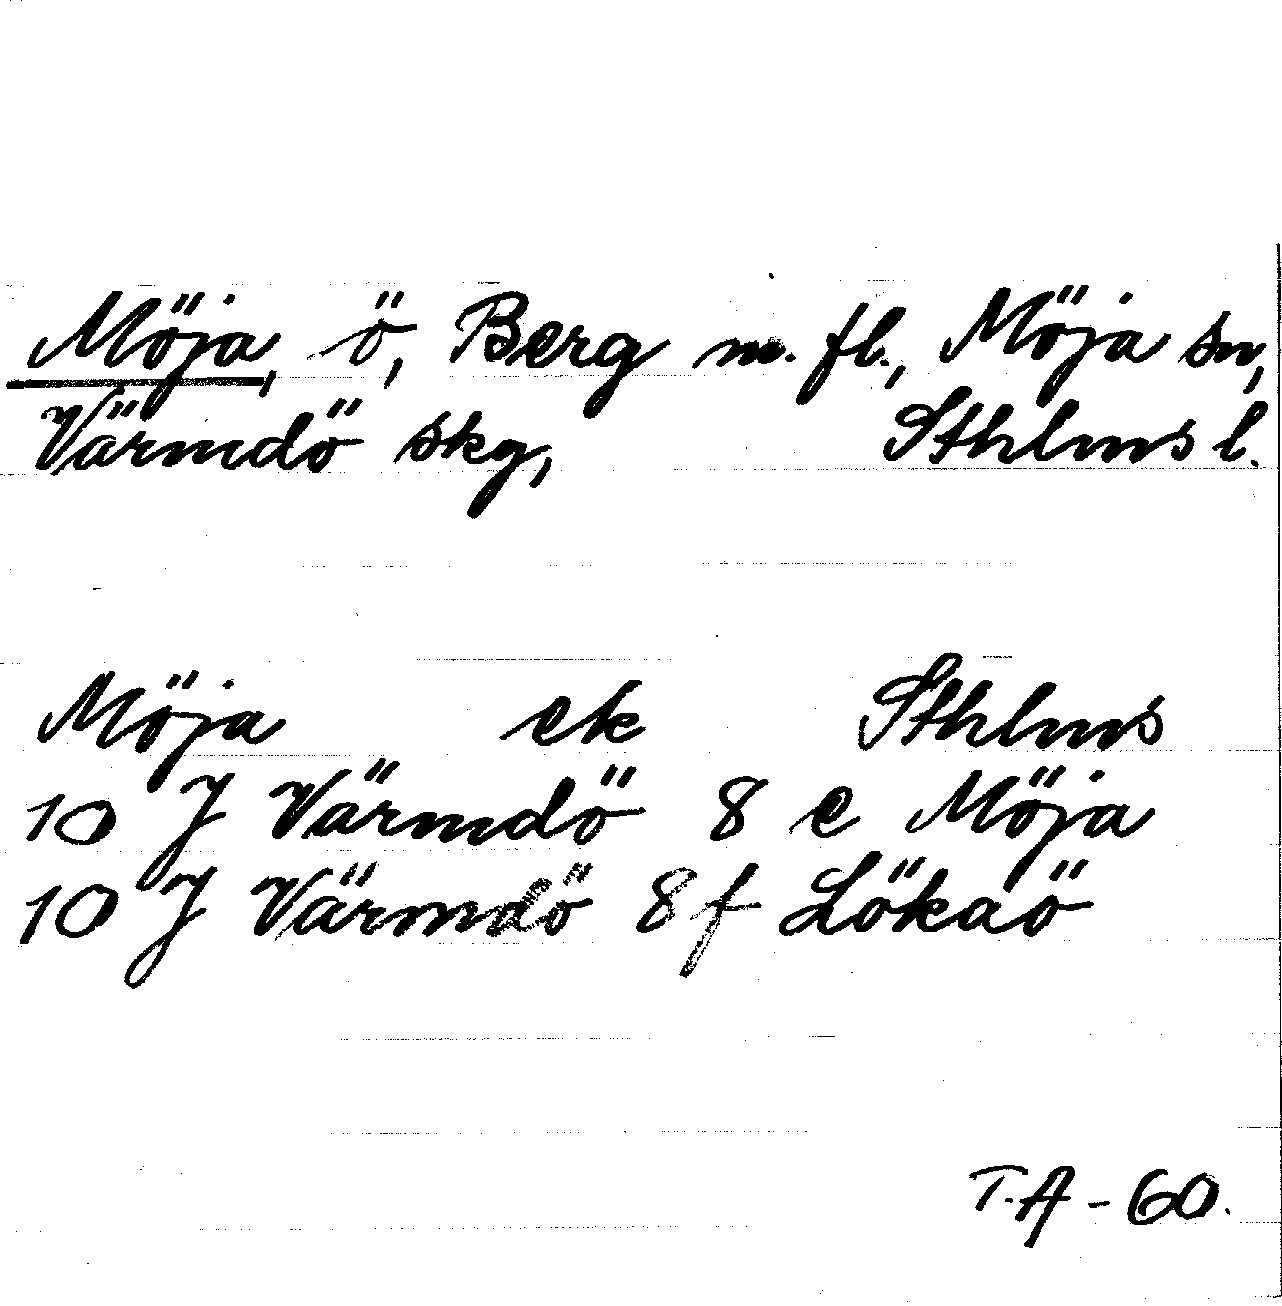 Möja, ö, Berg m. fl., Möja sn,
Värmdö skg, Sthlms l.
Möja ek Sthlms
10 J Värmdö 8 e Möja
10 J Värmdö 8 f Lökaö
T.A - 60.